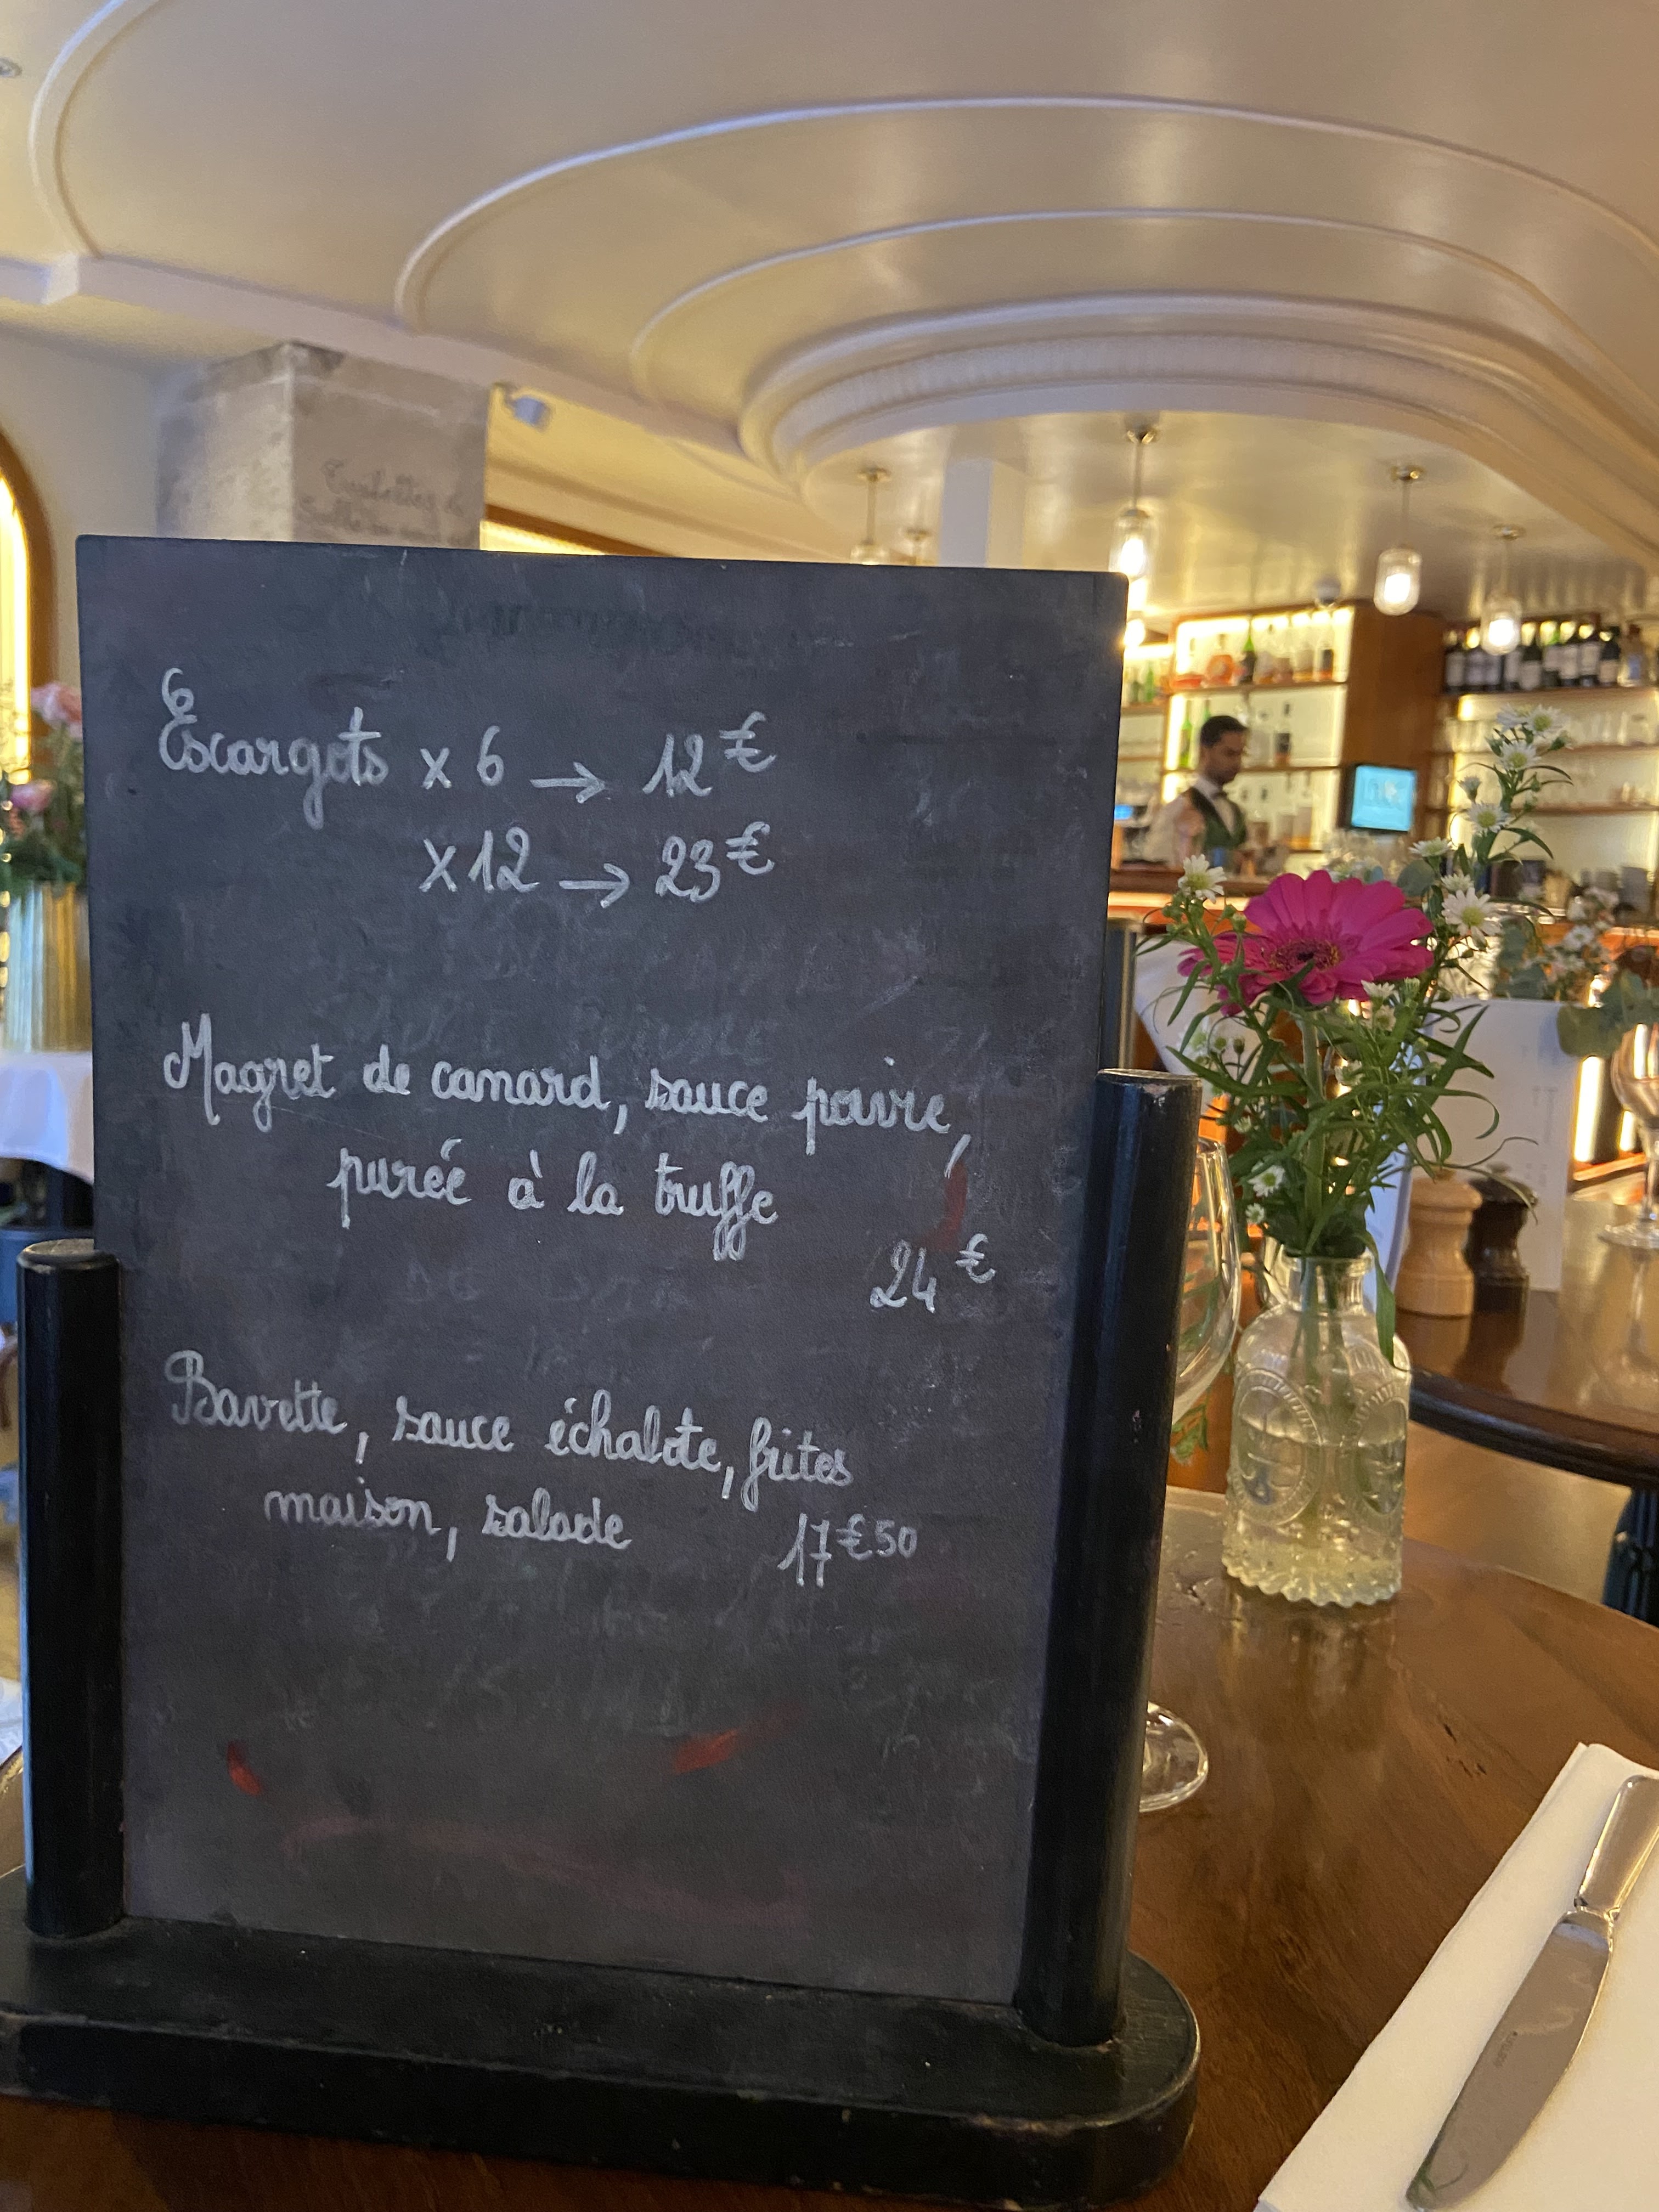 Escargots x 6 → 12€
x 12 → 23€
Magret de canard, sauce poivre,
purée à la truffe
24€
Bavette, sauce échalote, frites
maison, salade 17€50